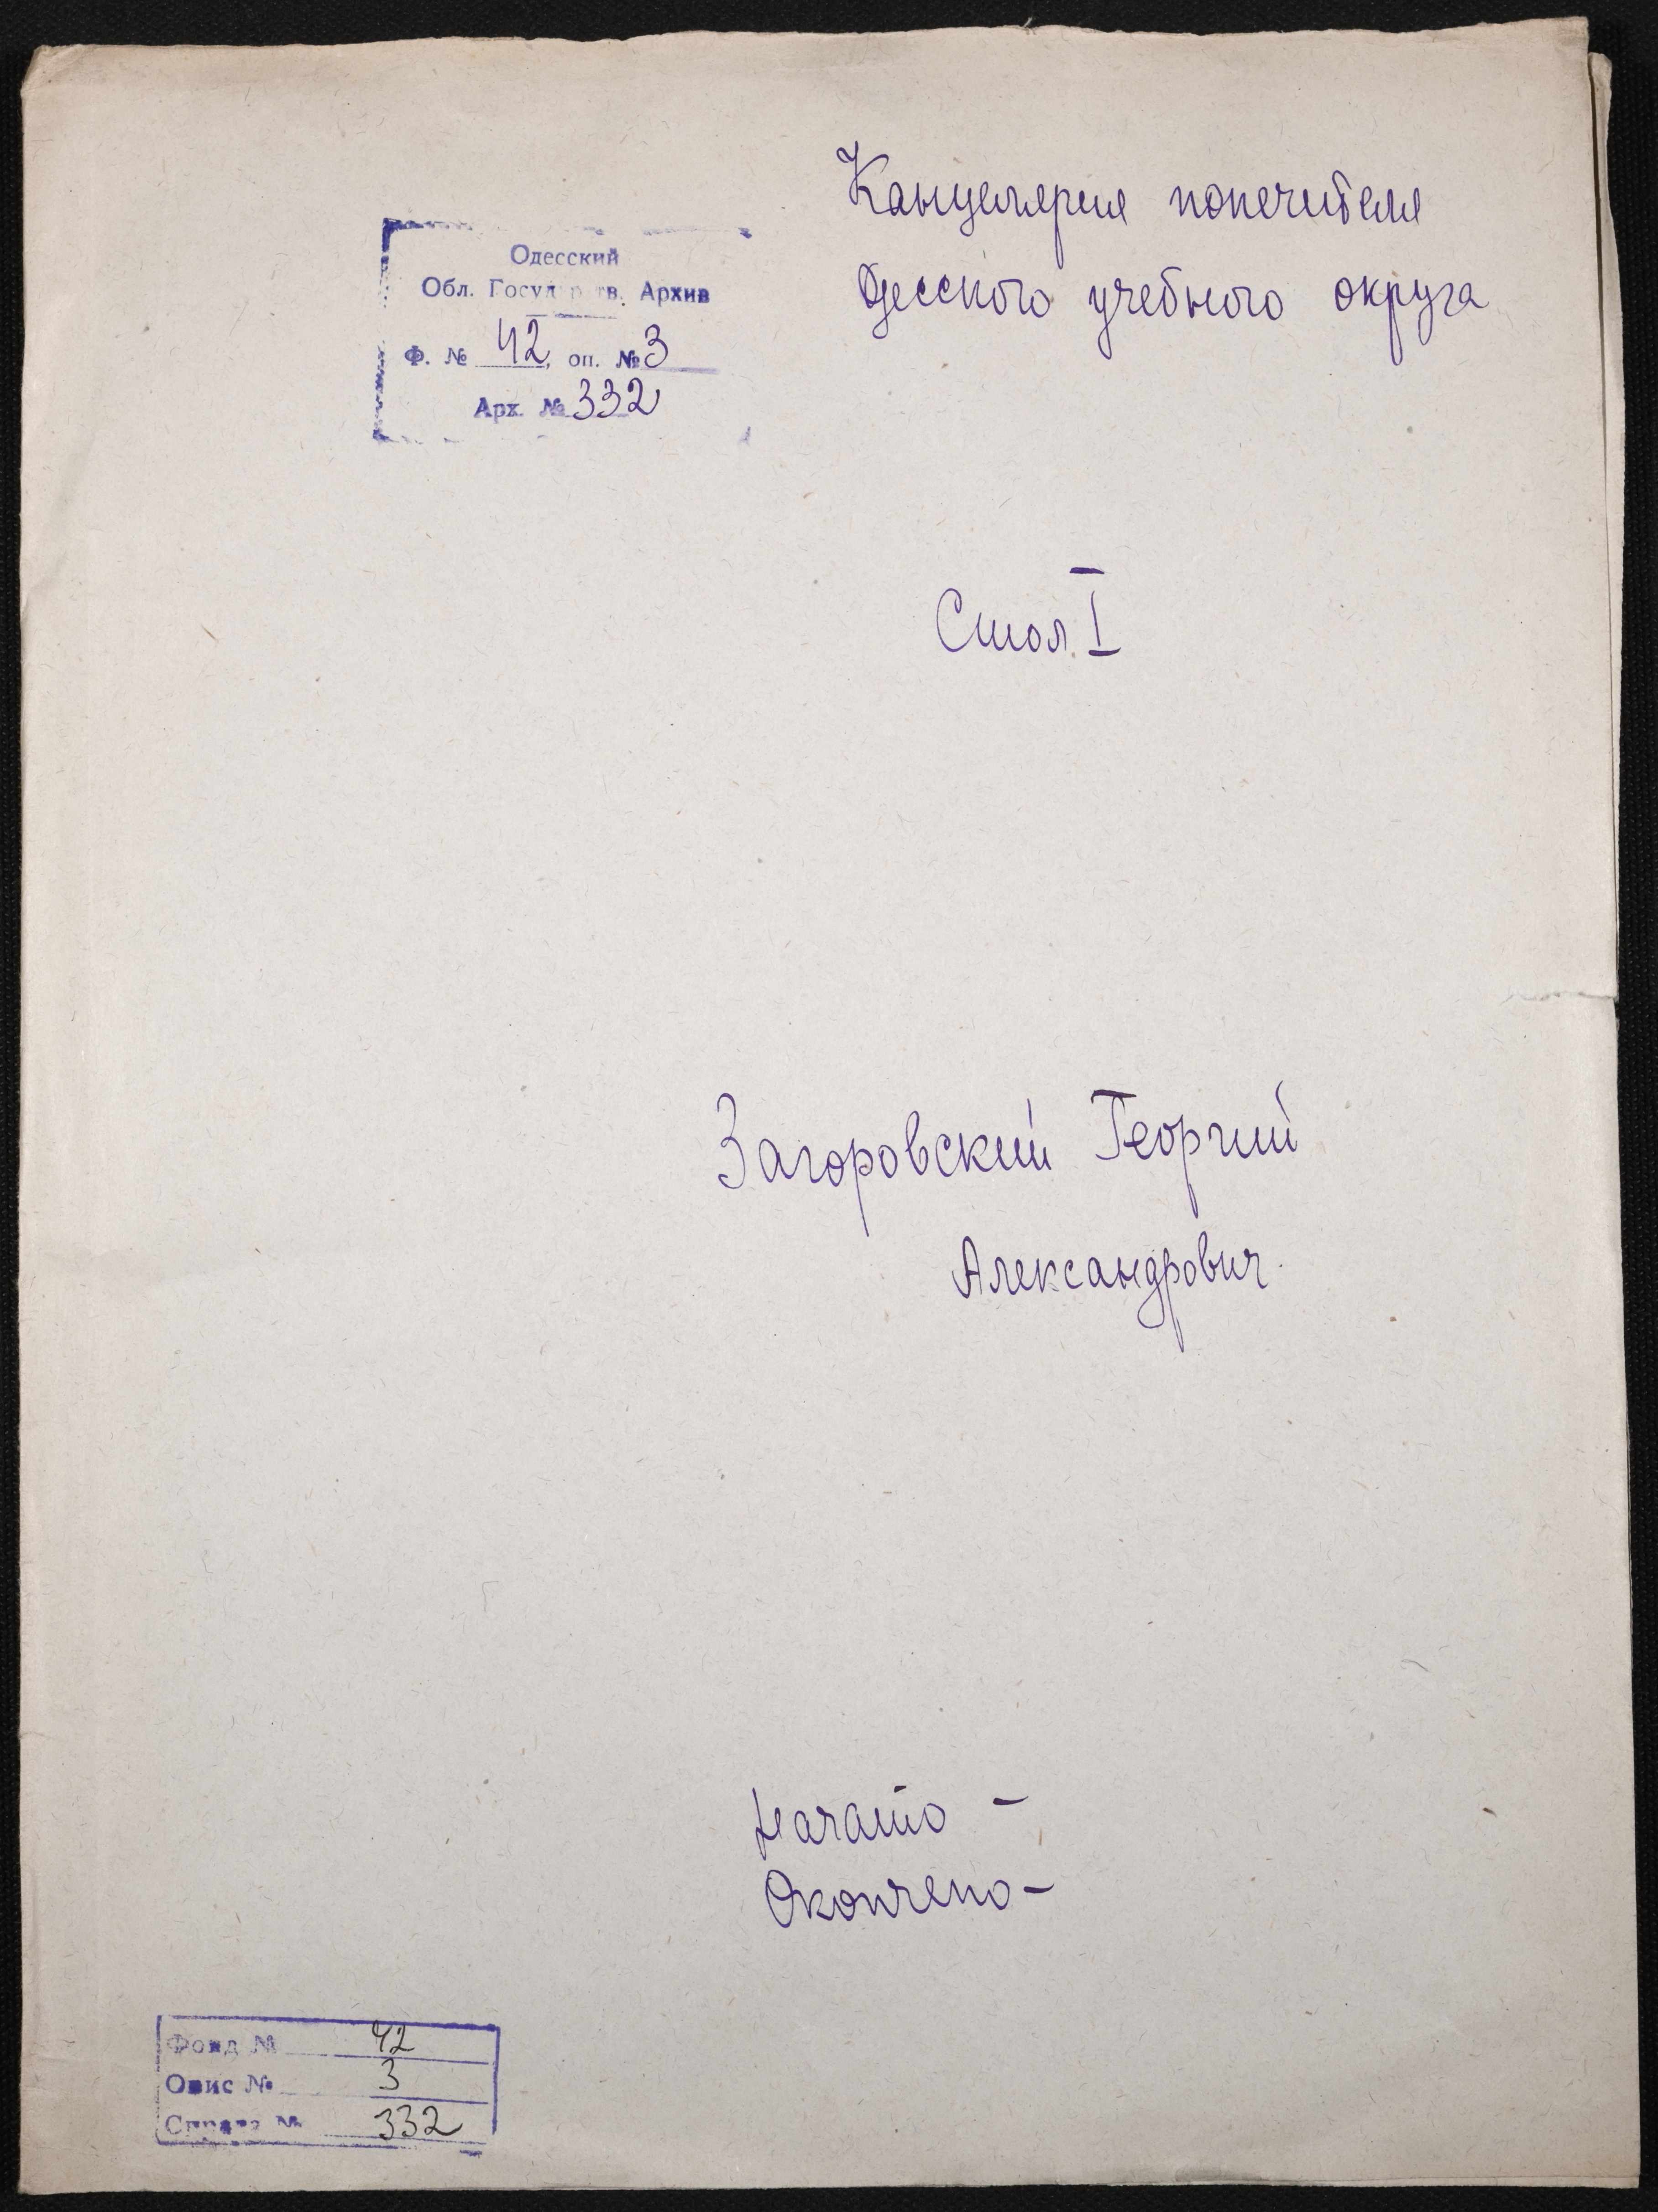 Канцелярия попечителя
Одесского учебного округа
Одесский
Обл. Государств. Архив
Ф. № 42, оп. № 3
Арх. № 332
Стол I
Загоровский Георгий
Александрович
Начато -
Окончено -
Фонд № 42
Опис № 3
Справа № 332